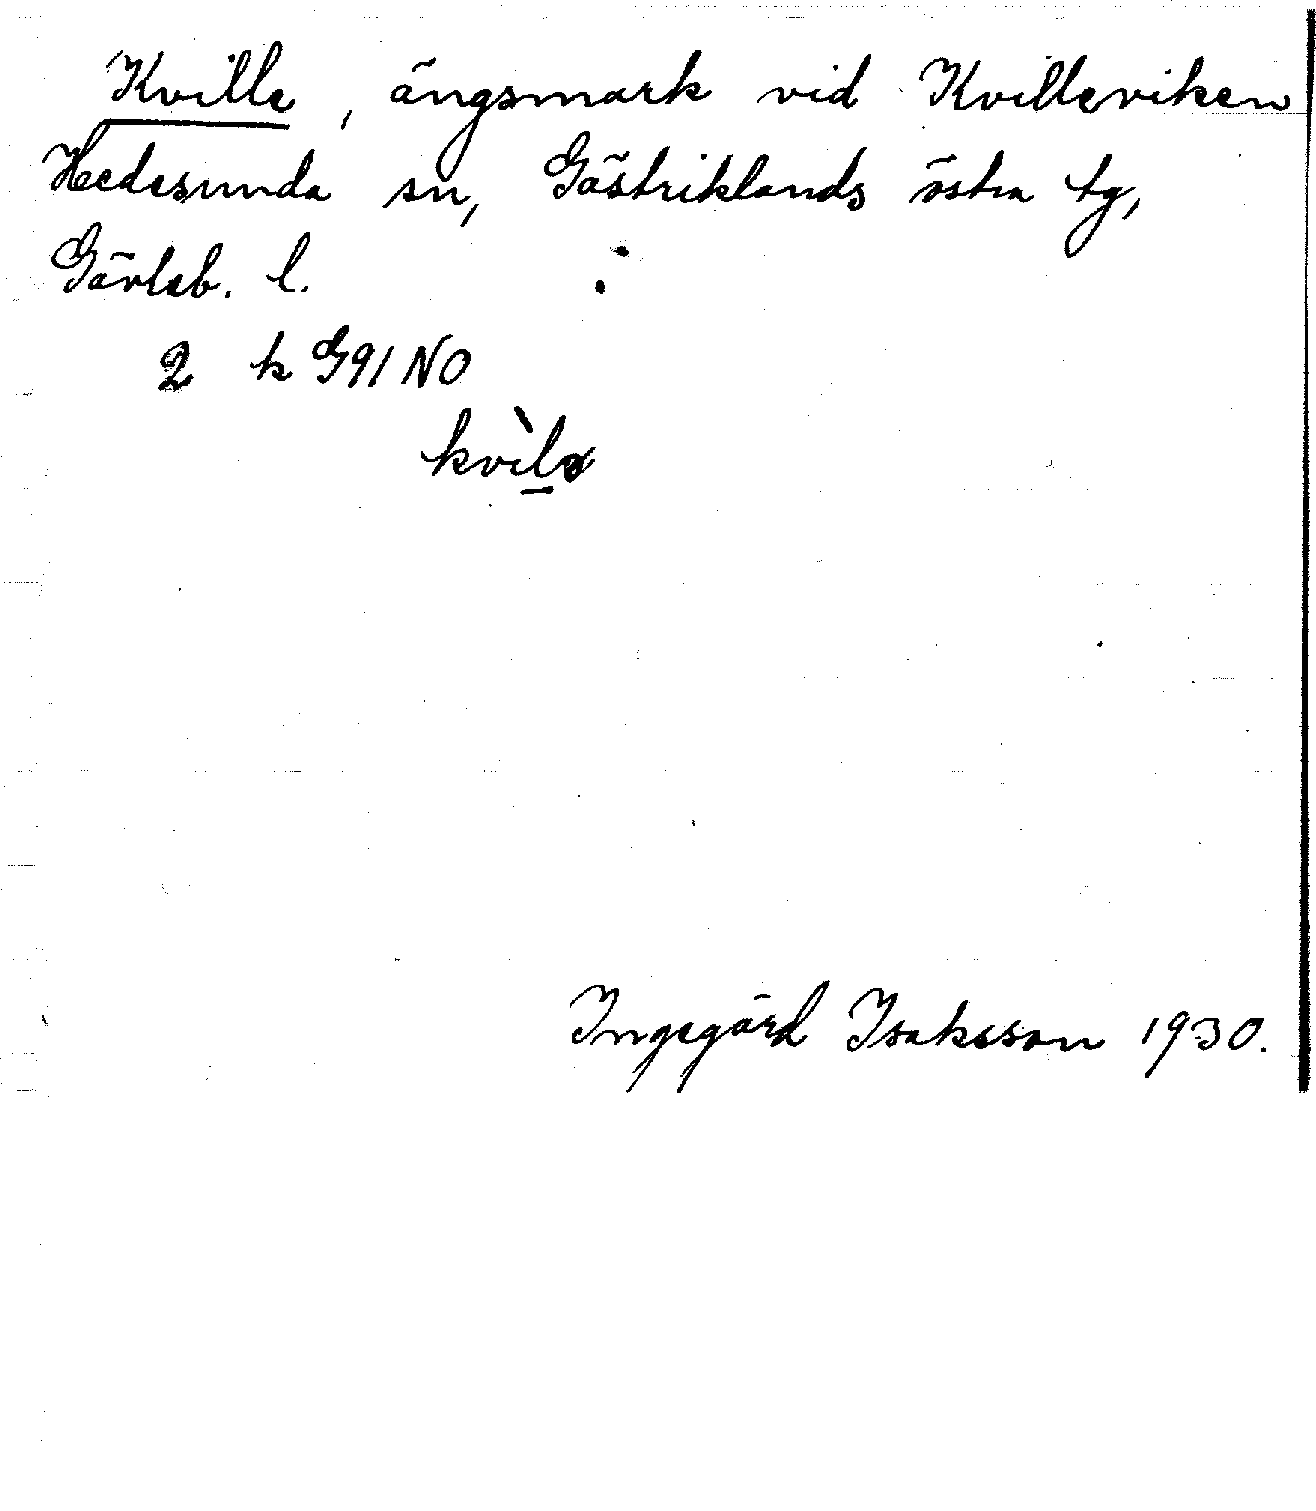 Kville, ängsmark vid Kvilleviken
Hedesunda sn, Gästriklands östra tg,
Gävleb. l.
2 k G91 NO
kvìlə
Ingegärd Isaksson 1930.